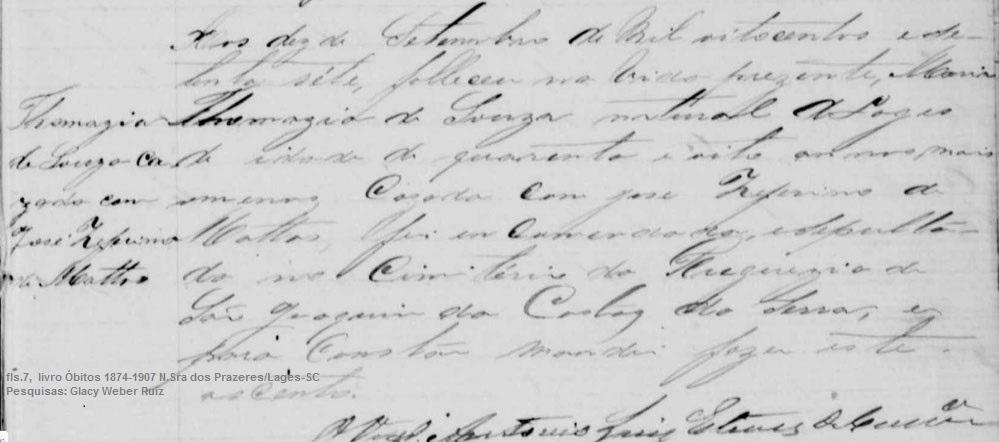 Aos dez de Setembro de Mil oitocentos e se-
tenta séte, falleceu na vida prezente, Maria
Thomazia de Souza natural de Lages
de idade de quarenta e oito annos, mais
omenos Cazada com José Zeferino de
Mattos, foi encomendada, e sepulta-
da no Cimitério da Freguezia de
São Joaquim da Costa da Serra, e
para Constar mandei fazer este
ascento.
O Vigº Antonio Luis Esteves de
Thomazia
de Souza Ca
zada com
José Zeferino
de Mattos
fls.7, livro Óbitos 1874-1907 N.Sra dos Prazeres/Lages-SC
Pesquisas: Glacy Weber Ruiz